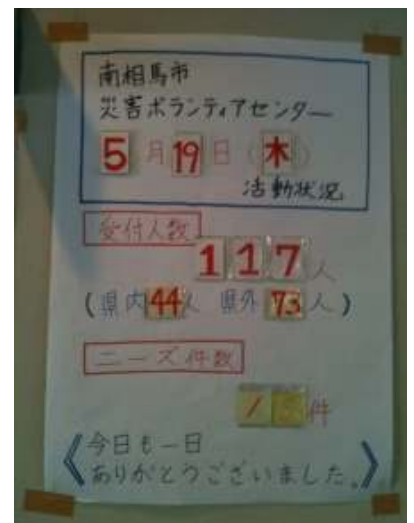 南相馬市
災害ボランティアセンター
5月19日(木)
活動状況
受付人数
117人
(県内44人 県外73人)
ニーズ件数
件
今日も一日
ありがとうございました。